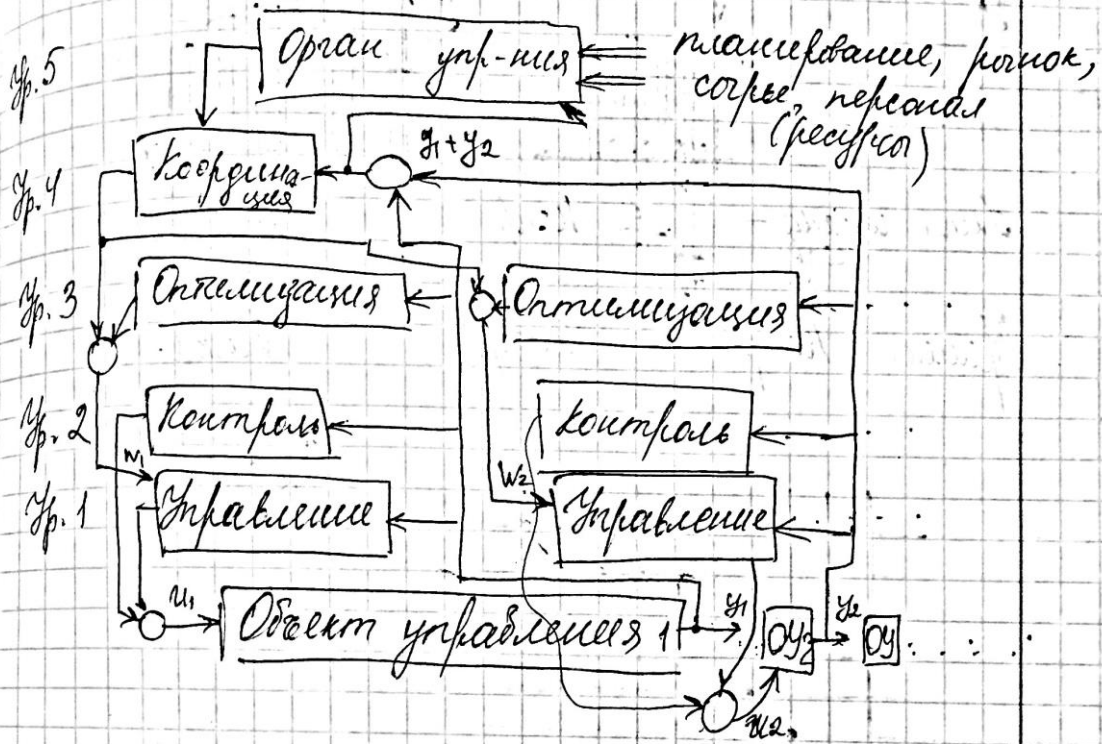 Ур. 5
Орган упр-ния
планирование, рынок,
сырье, персонал
(ресурсы)
Ур. 4
Координа-
ция
y₁+y₂
Ур. 3
Оптимизация
Оптимизация
Ур. 2
Контроль
Контроль
w₁
w₂
Ур. 1
Управление
Управление
u₁
Объект управления 1
y₁
ОУ2
y₂
ОУ
u₂